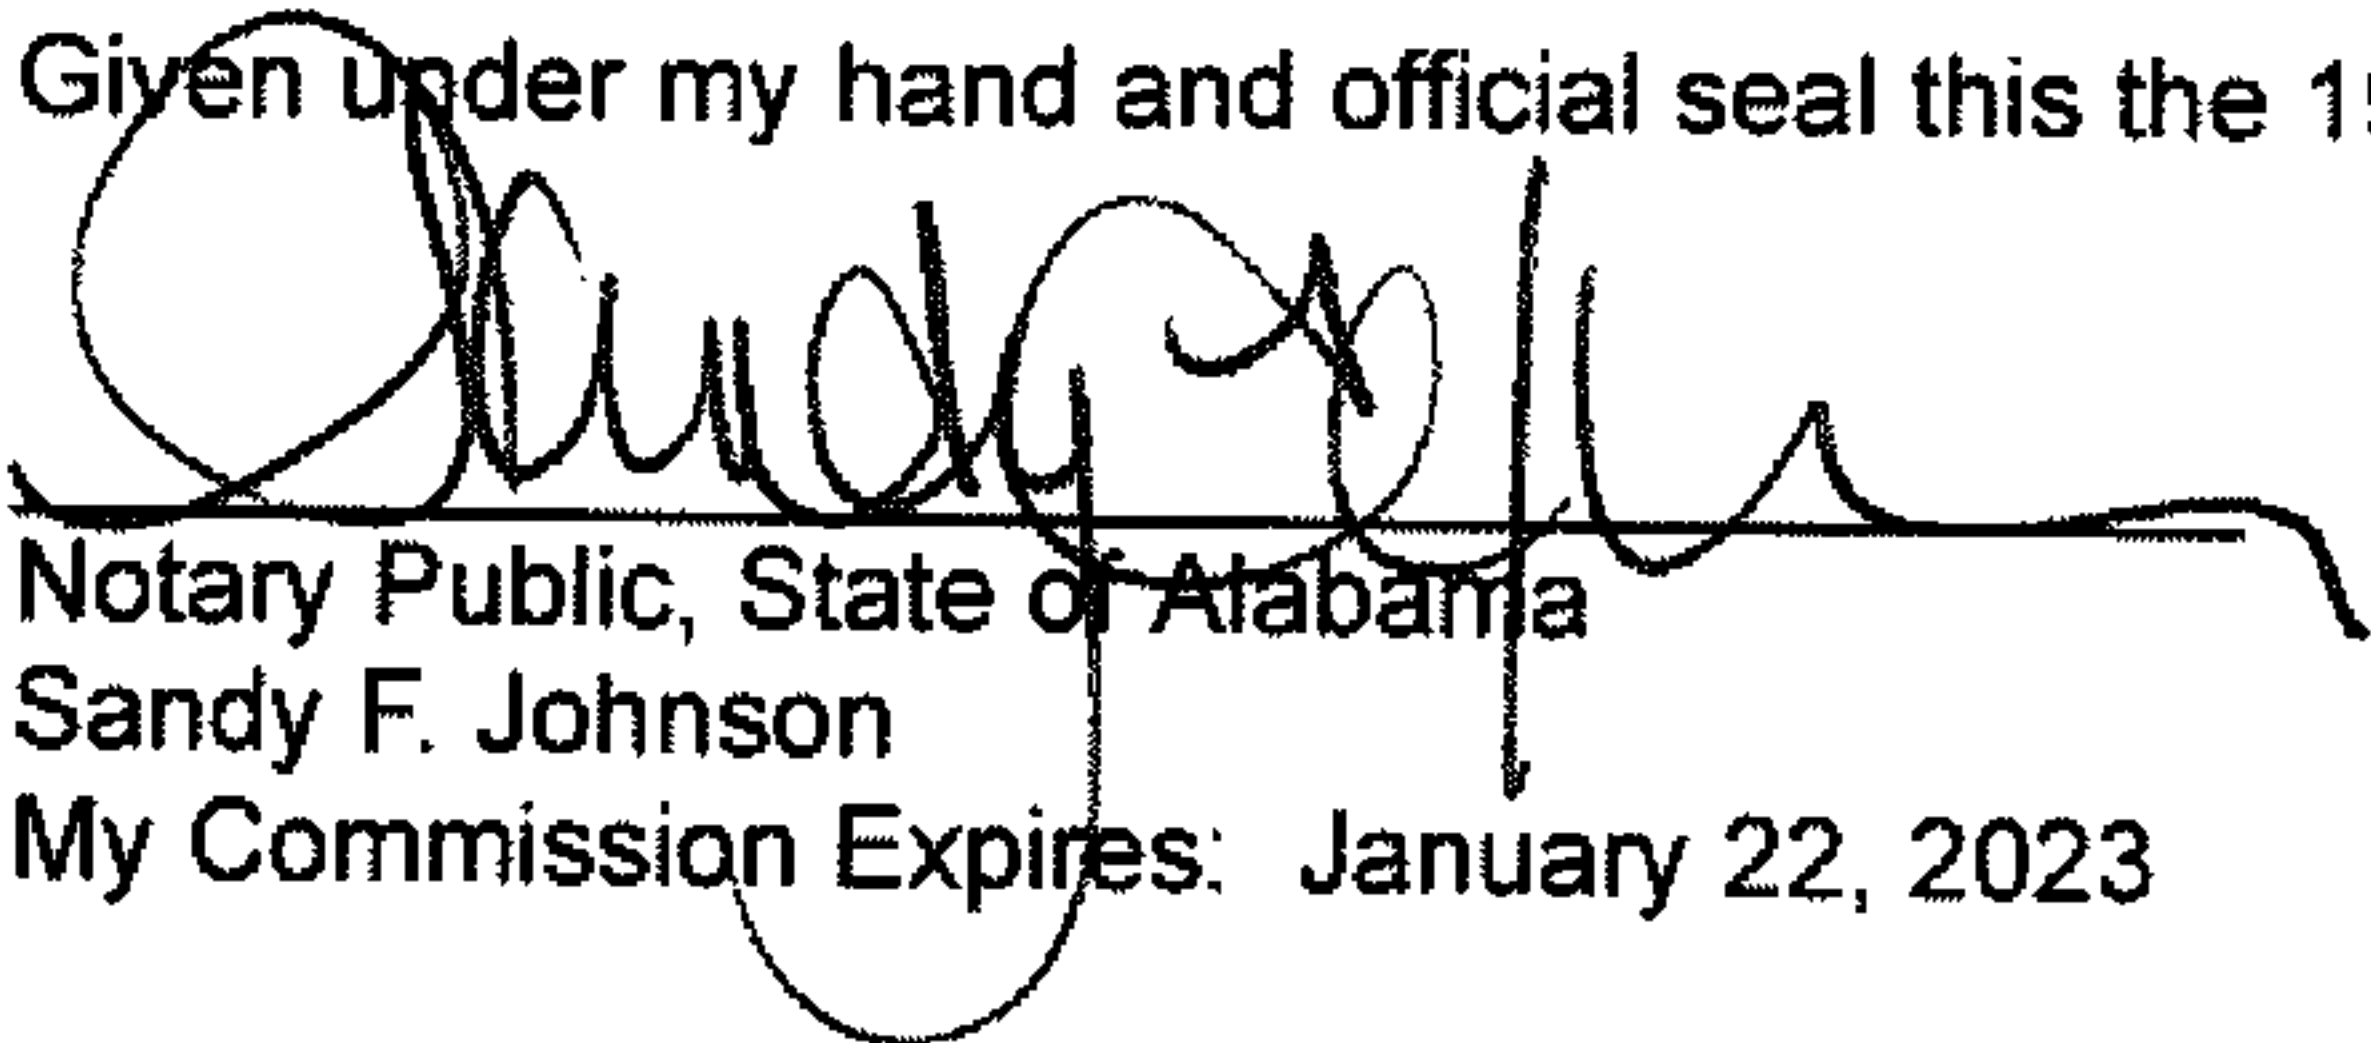 Given under my hand and official seal this the 15
Notary Public, State of Alabama
Sandy F. Johnson
My Commission Expires: January 22, 2023